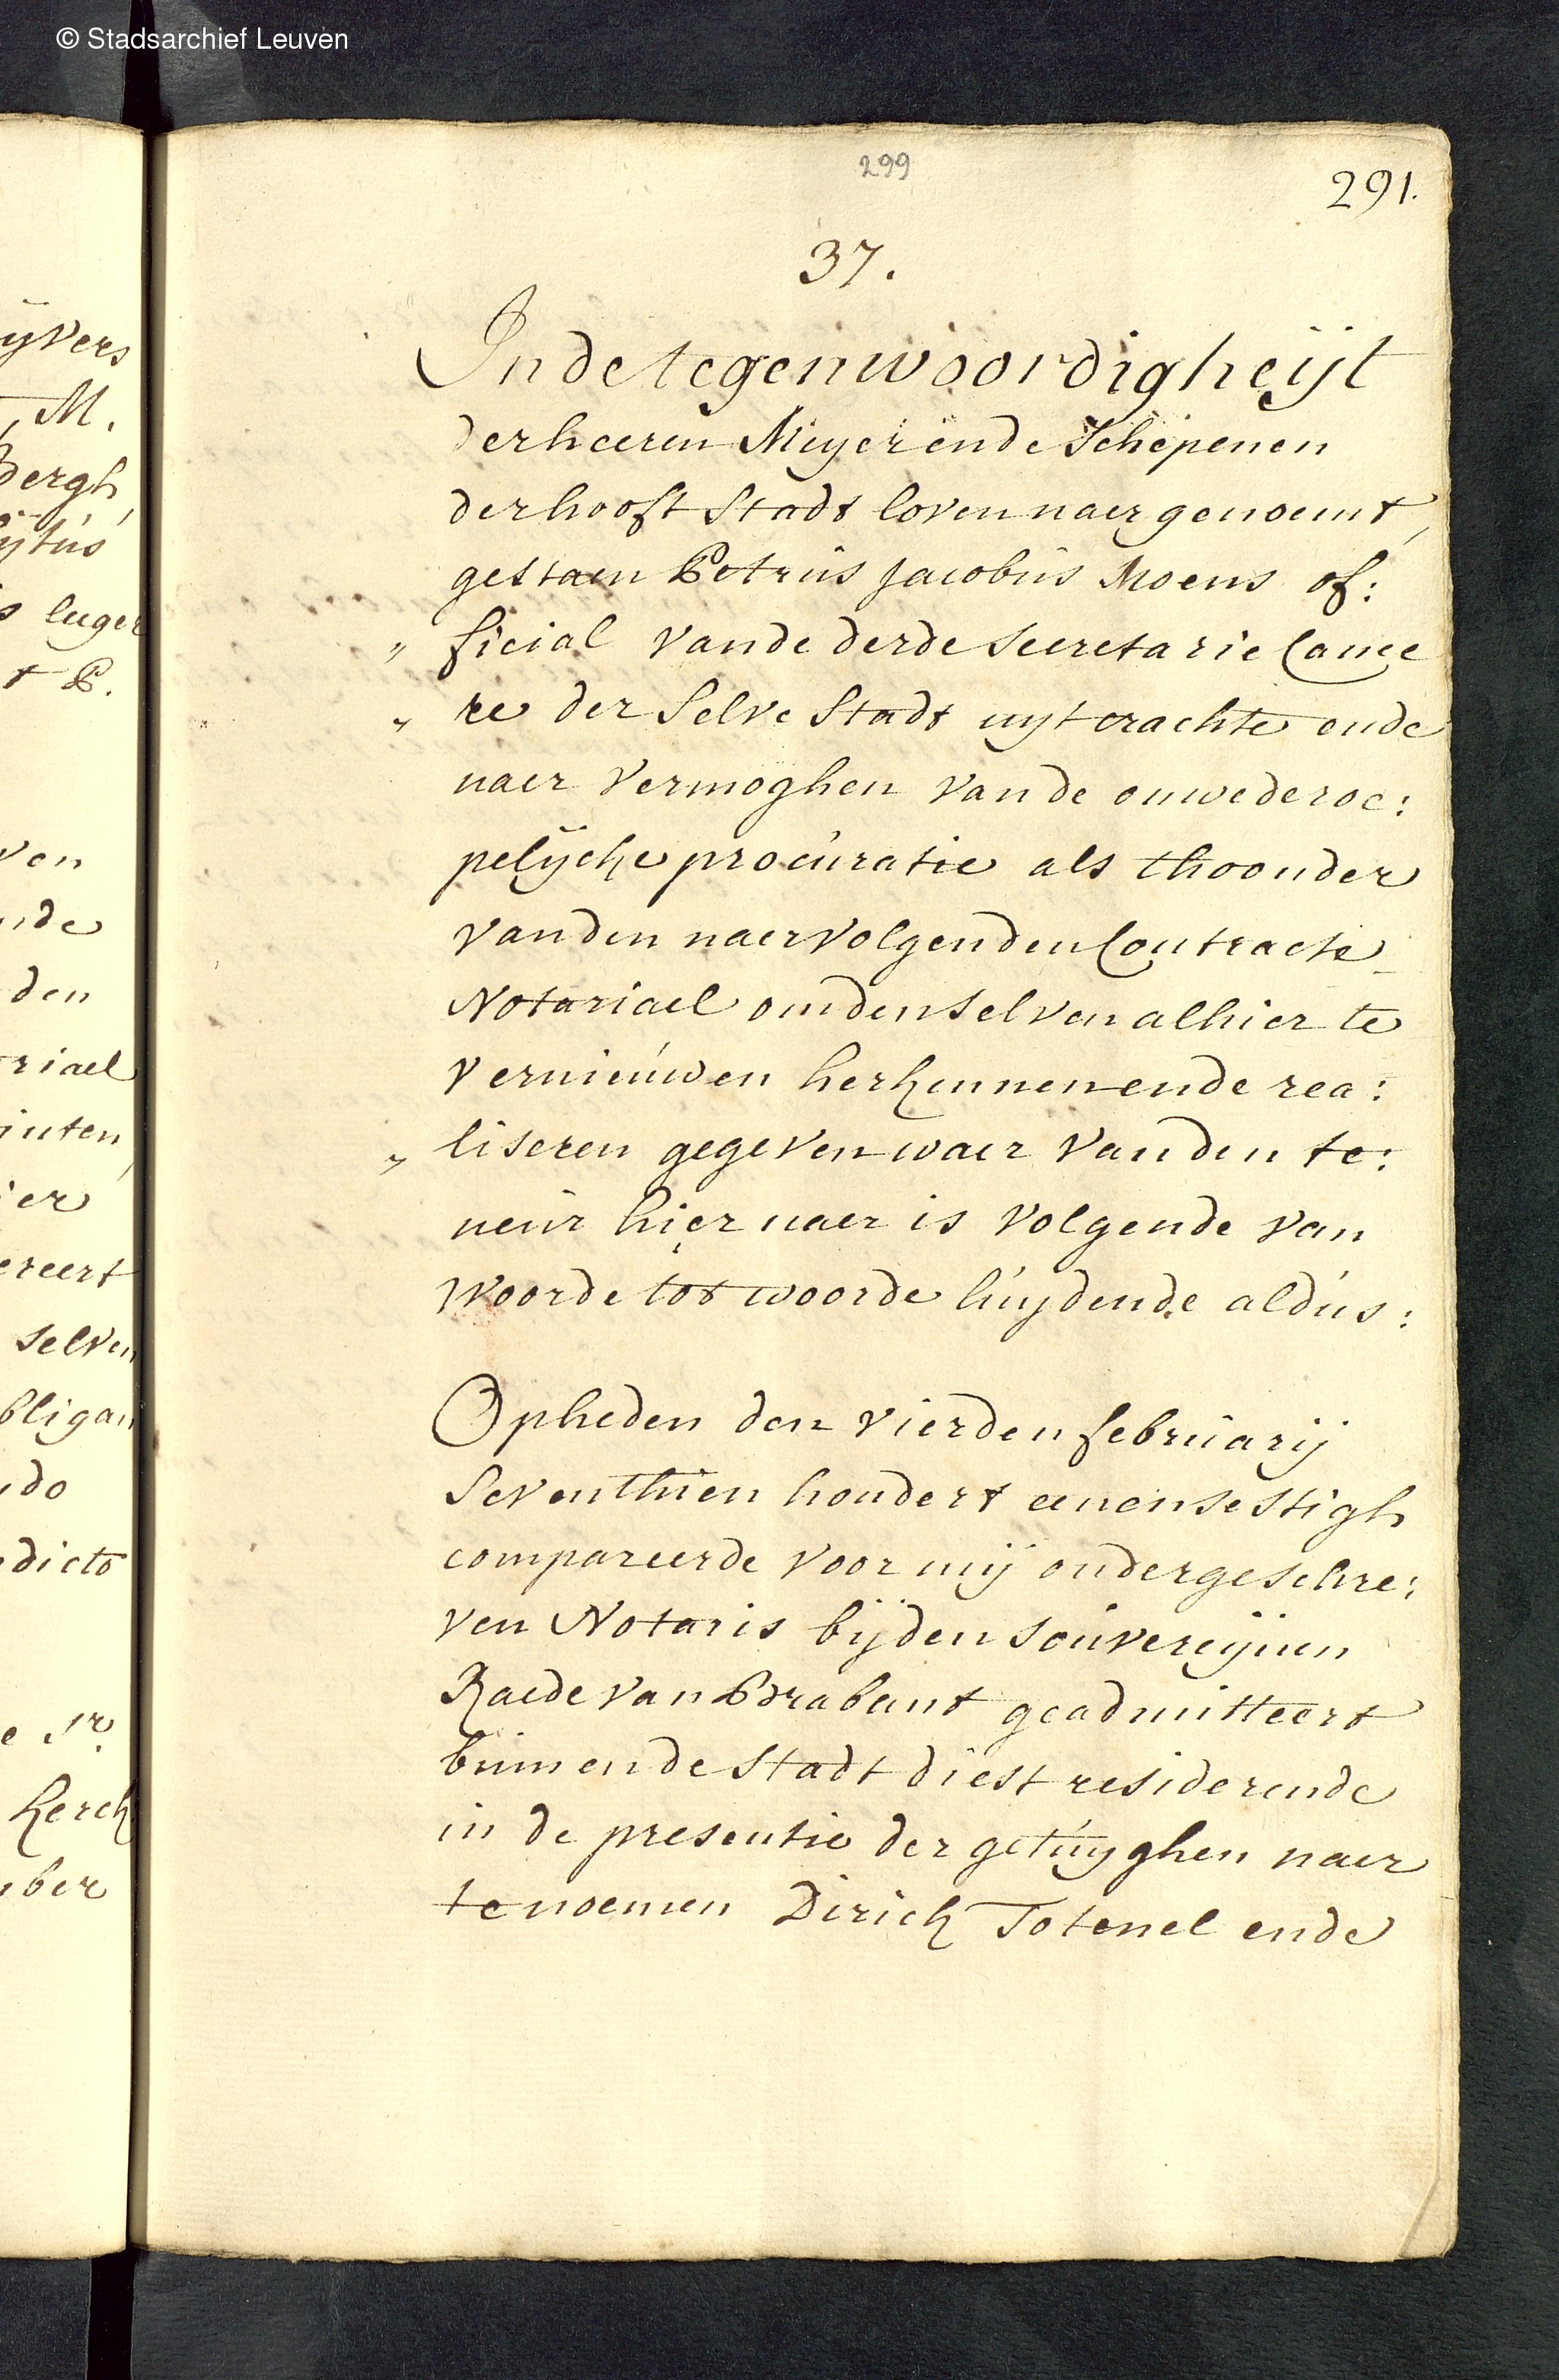 © Stadsarchief Leuven
299
291.
37.
In de tegenwoordigheijt
der heeren Meyer ende Schepenen
der hooft Stadt loven naergenoemt,
gestaen Petrus Jacobus Moens of:
„ ficial vande derde secretarie Came
„ re der selve Stadt uyt crachte ende
naer vermoghen vande onwederoe:
pelÿcke procuratie als thoonder
vanden naervolgenden Contracte
Notariael om den selven alhier te
vernieuwen herkennen ende rea:
„ liseren gegeven waer vanden te:
neur hier naer is volgende van
woorde tot woorde luydende aldus:
Op heden den vierden februarij
seventhien hondert eenensestigh
compareerde voor mij ondergeschre:
ven Notaris bÿden souvereÿnen
Raede van Brabant geadmitteert
binnen de stadt diest residerende
in de presentie der getuyghen naer
te noemen Dirick Totenel ende
yvers
, M.
bergh,
ytus
s luger
t P.
ven
nde
den
riael
inten,
ier
ereert
selven
bligan
do
dicto
e Sr.
kerck
mber